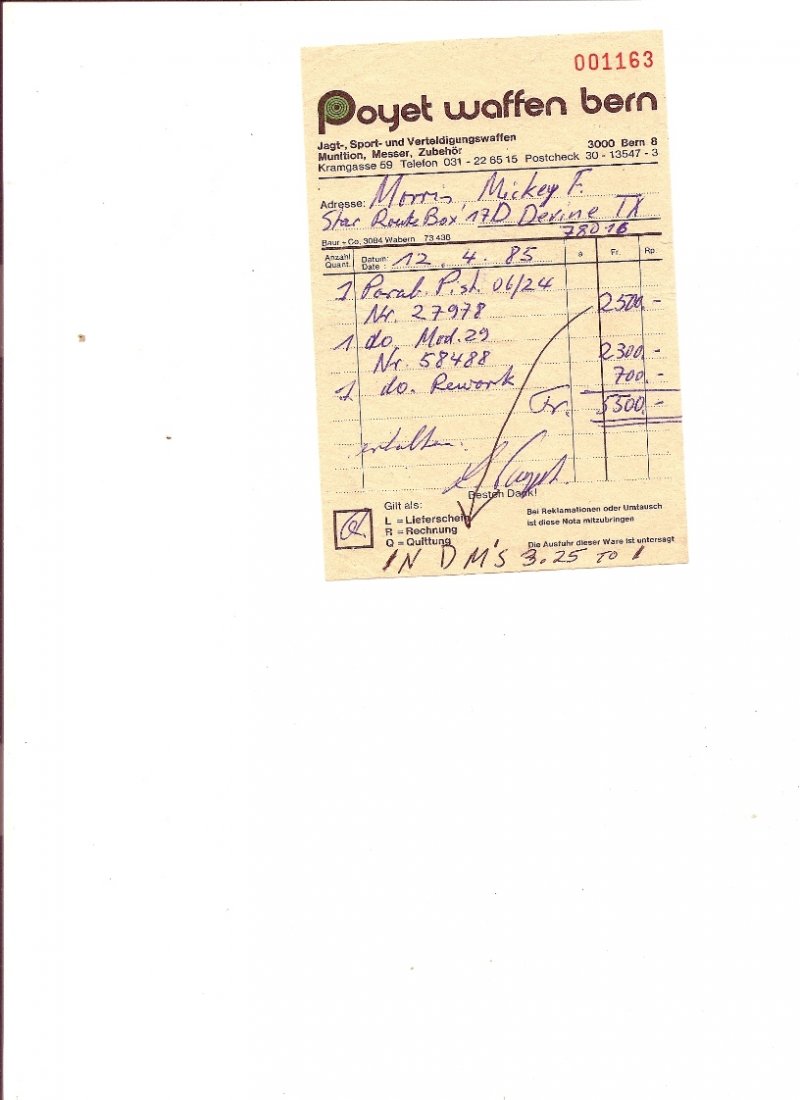 001163
Poyet waffen bern
Jagt-, Sport- und Verteidigungswaffen
Munition, Messer, Zubehör 3000 Bern 8
Kramgasse 59 Telefon 031 - 22 65 15 Postcheck 30 - 13547 - 3
Adresse: Morris, Mickey F.
Star Route Box 17D Devine TX
78016
Baur + Co, 3084 Wabern 73436
Anzahl Quant. Datum: Date: 12. 4. 85 a Fr. Rp.
1 Parab. Pist. 06/24
Nr. 27978 2500.-
1 do. Mod. 29
Nr. 58488 2300.-
1 do. Rework 700.-
Fr. 5500.-
erhalten:
Besten Dank!
Gilt als:
L = Lieferschein
R = Rechnung
Q = Quittung
Q
Bei Reklamationen oder Umtausch
ist diese Nota mitzubringen
Die Ausfuhr dieser Ware ist untersagt
IN DM'S 3.25 TO 1